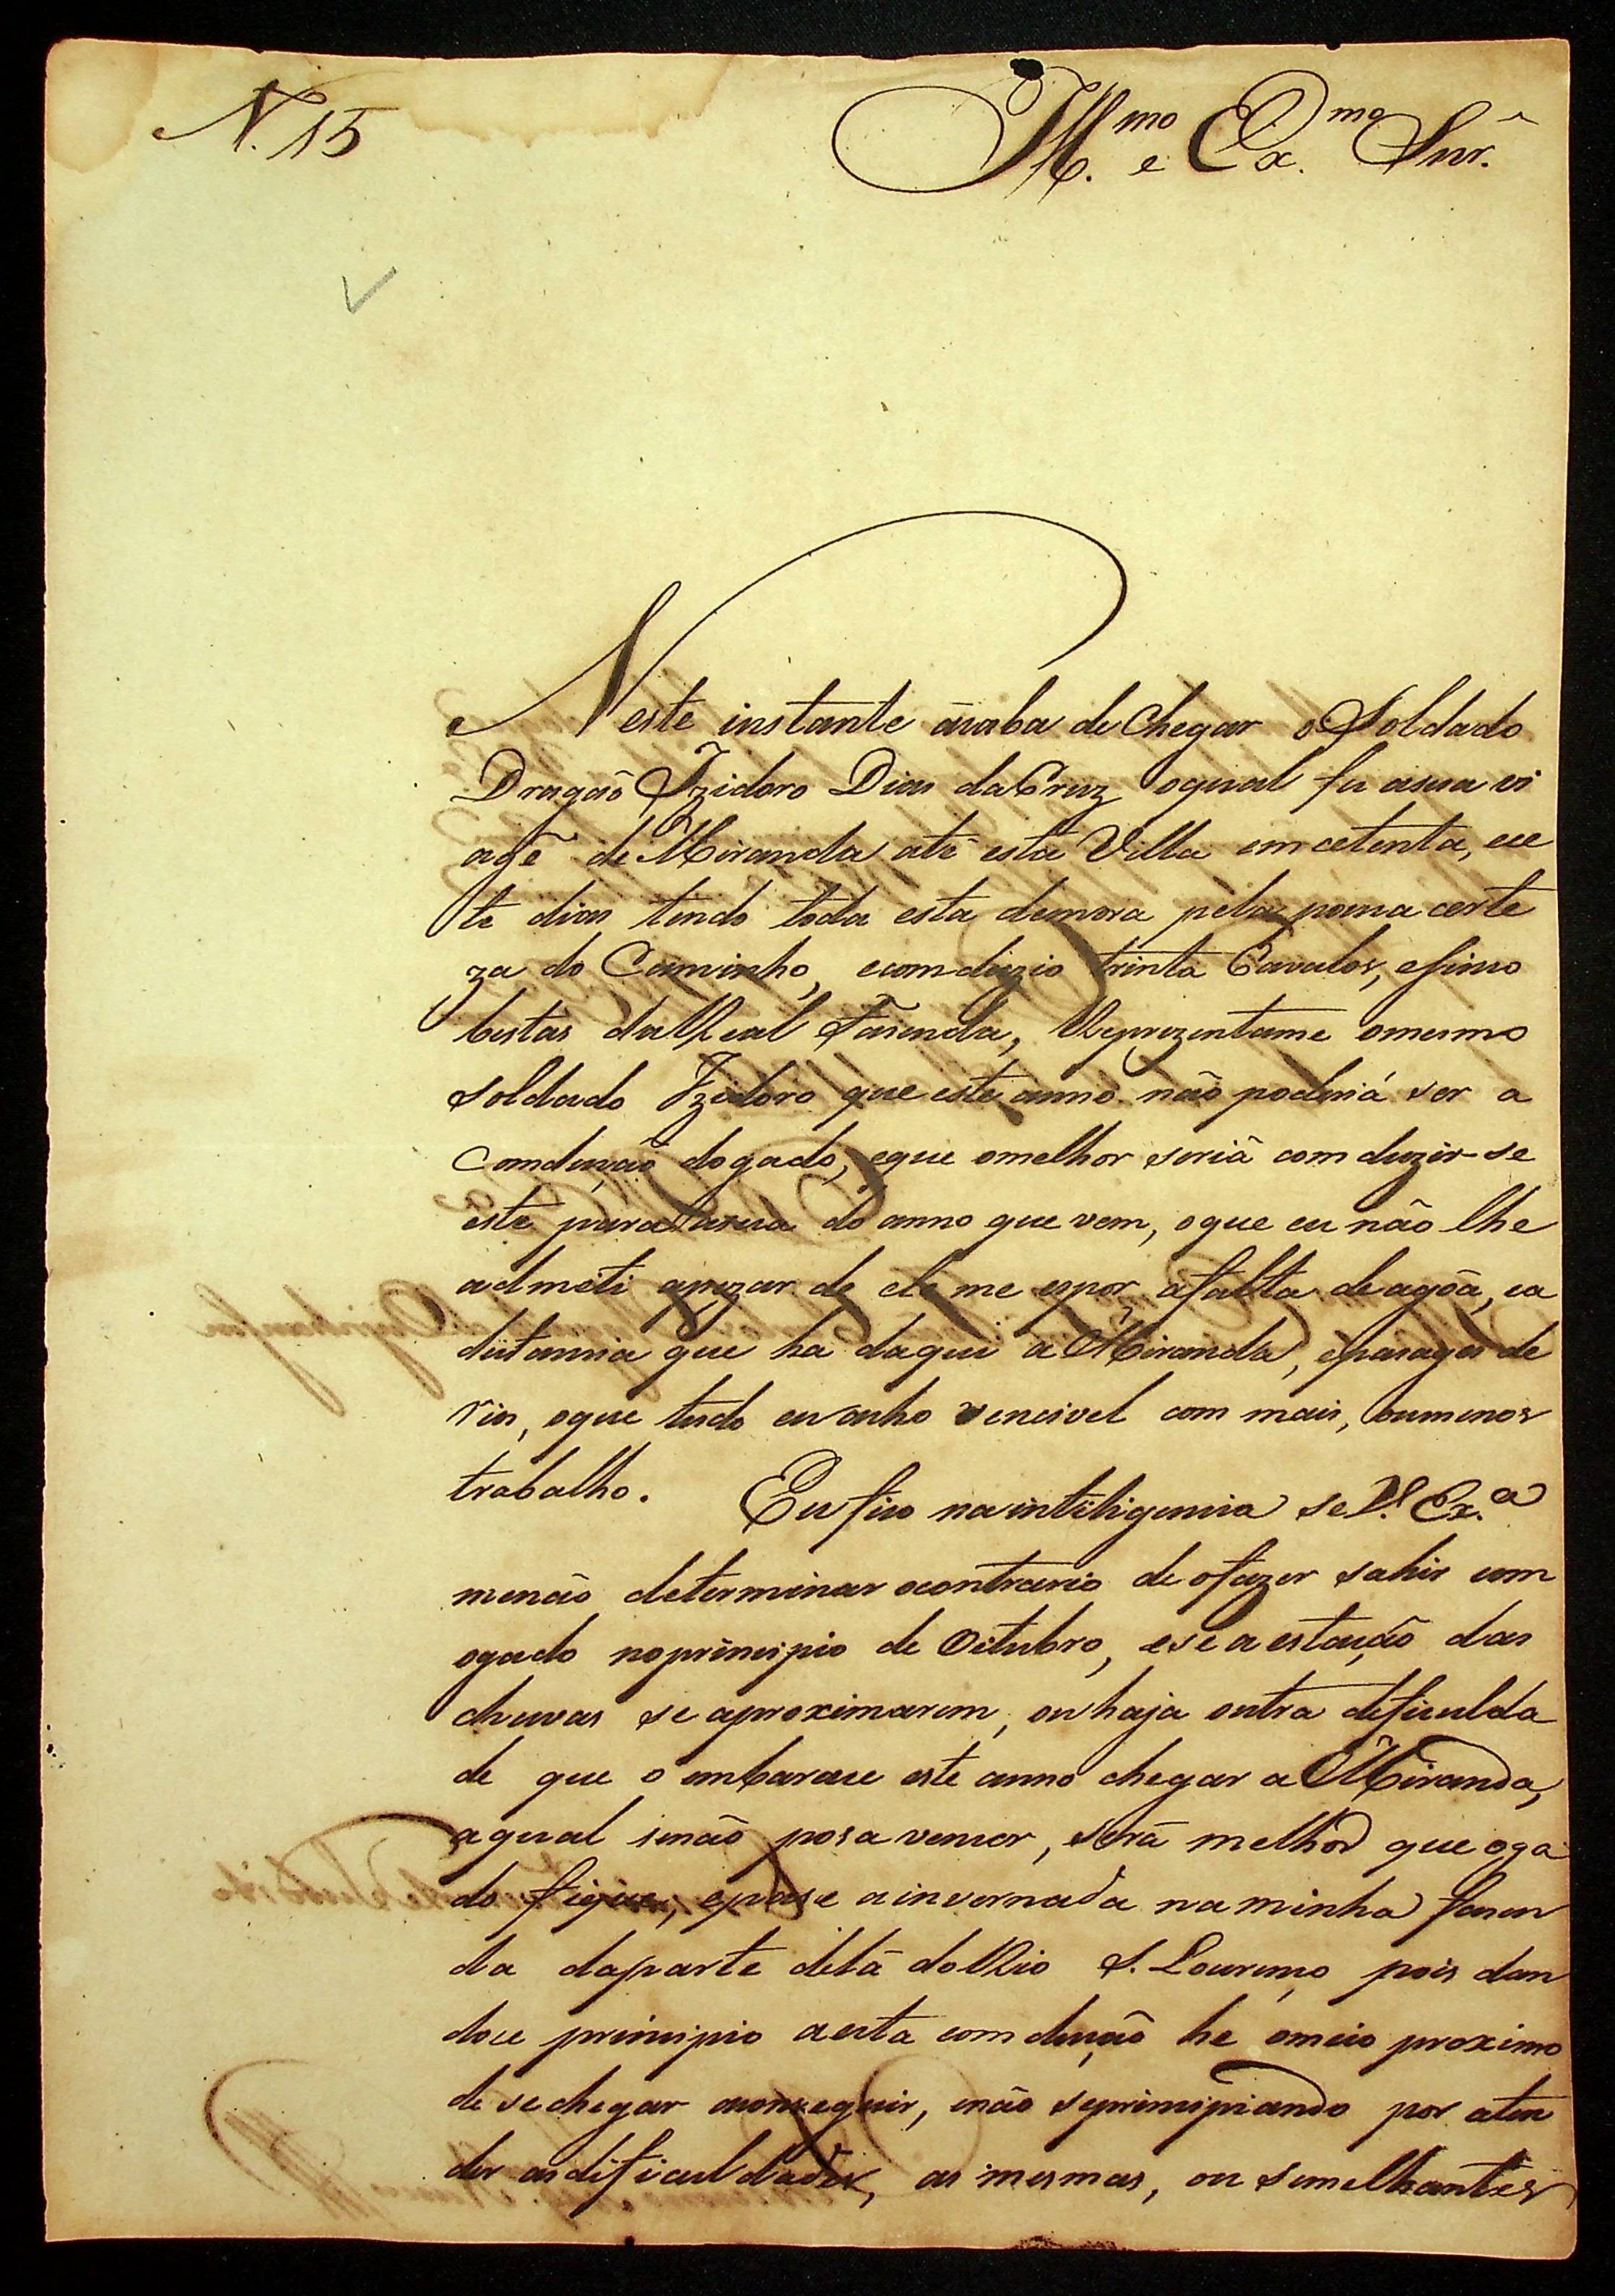 N. 15
Ill.mo e Ex.mo Snr.
Neste instante acaba de Chegar o Soldado
Dragão Izidoro Dias da Cruz oqual fes asua vi
agẽ de Miranda até esta Villa em cetenta, ece
te dias tendo toda esta demora pela pouca certe
za do Caminho, econduzio trinta Cavalos, esinco
bestas daReal Fasenda, Reprezentame omesmo
soldado Izidoro que este anno não poderiá ser a
Comdução dogado, eque omelhor seriá comduzir-se
este para a do anno que vem, oque eu não lhe
admeti apezar de ele me espor afalta de agoa, ea
distancia que ha daqui a Miranda, epasages de
rios, oque tudo eu acho vencivel com mais, oumenos
trabalho. Eu fico nainteligencia se V. Ex.a
menão determinar ocontrario de ofazer sahir com
ogado noprincipio de Oitubro, ese a estação das
chuvas se aproximarem, ouhaja outra deficulda
de que o embarace este anno chegar a Miranda,
aqual senão posa vencer, será melhor que oga
do fique, epase ainvernada naminha fasen
da daparte delá doRio S. Lourenço pois dan
doce principio aesta comdução he omeio proximo
de sechegar aconseguir, enão seprincipiando por aten
der asdificuldades, as mesmas, ou semelhantes